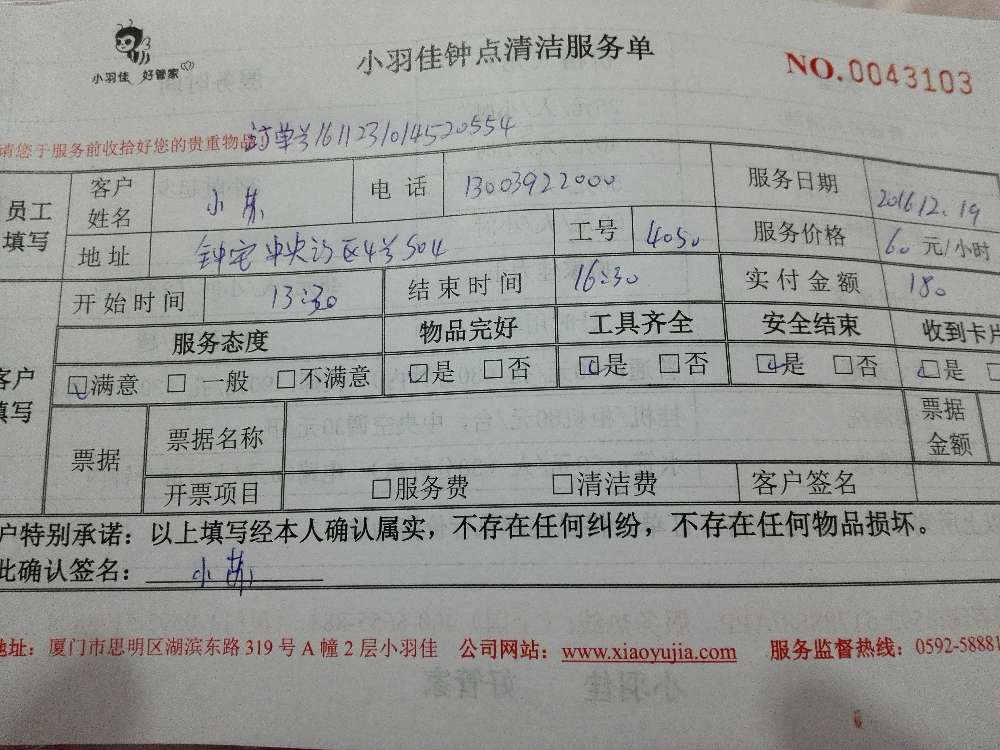 小羽佳 好管家
小羽佳钟点清洁服务单
NO.0043103
请您于服务前收拾好您的贵重物品
订单号161123101452 0554
员工填写
客户姓名 小苏 电话 13003922000 服务日期 2016.12.19
地址 钟宅中央湾区4号504 工号 4050 服务价格 60元/小时
开始时间 13:30 结束时间 16:30 实付金额 180
服务态度 物品完好 工具齐全 安全结束 收到卡片
客户填写
☑满意 □一般 □不满意 ☑是 □否 ☑是 □否 ☑是 □否 ☑是 □
票据 票据名称 票据金额
开票项目 □服务费 □清洁费 客户签名
户特别承诺：以上填写经本人确认属实，不存在任何纠纷，不存在任何物品损坏。
此确认签名： 小苏
地址：厦门市思明区湖滨东路 319 号 A 幢 2 层小羽佳 公司网站：www.xiaoyujia.com 服务监督热线：0592-58881